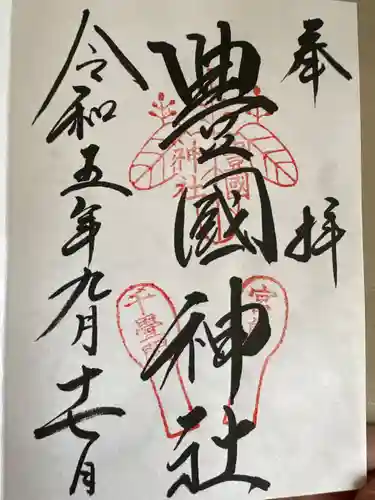 奉拝
豊國神社
令和五年九月十七日
豊國
神社
千畳閣
宮島